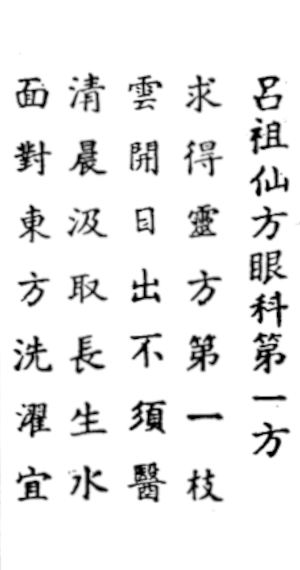 呂祖仙方眼科第一方
求得靈方第一枝
雲開目出不須醫
清晨汲取長生水
面對東方洗濯宜